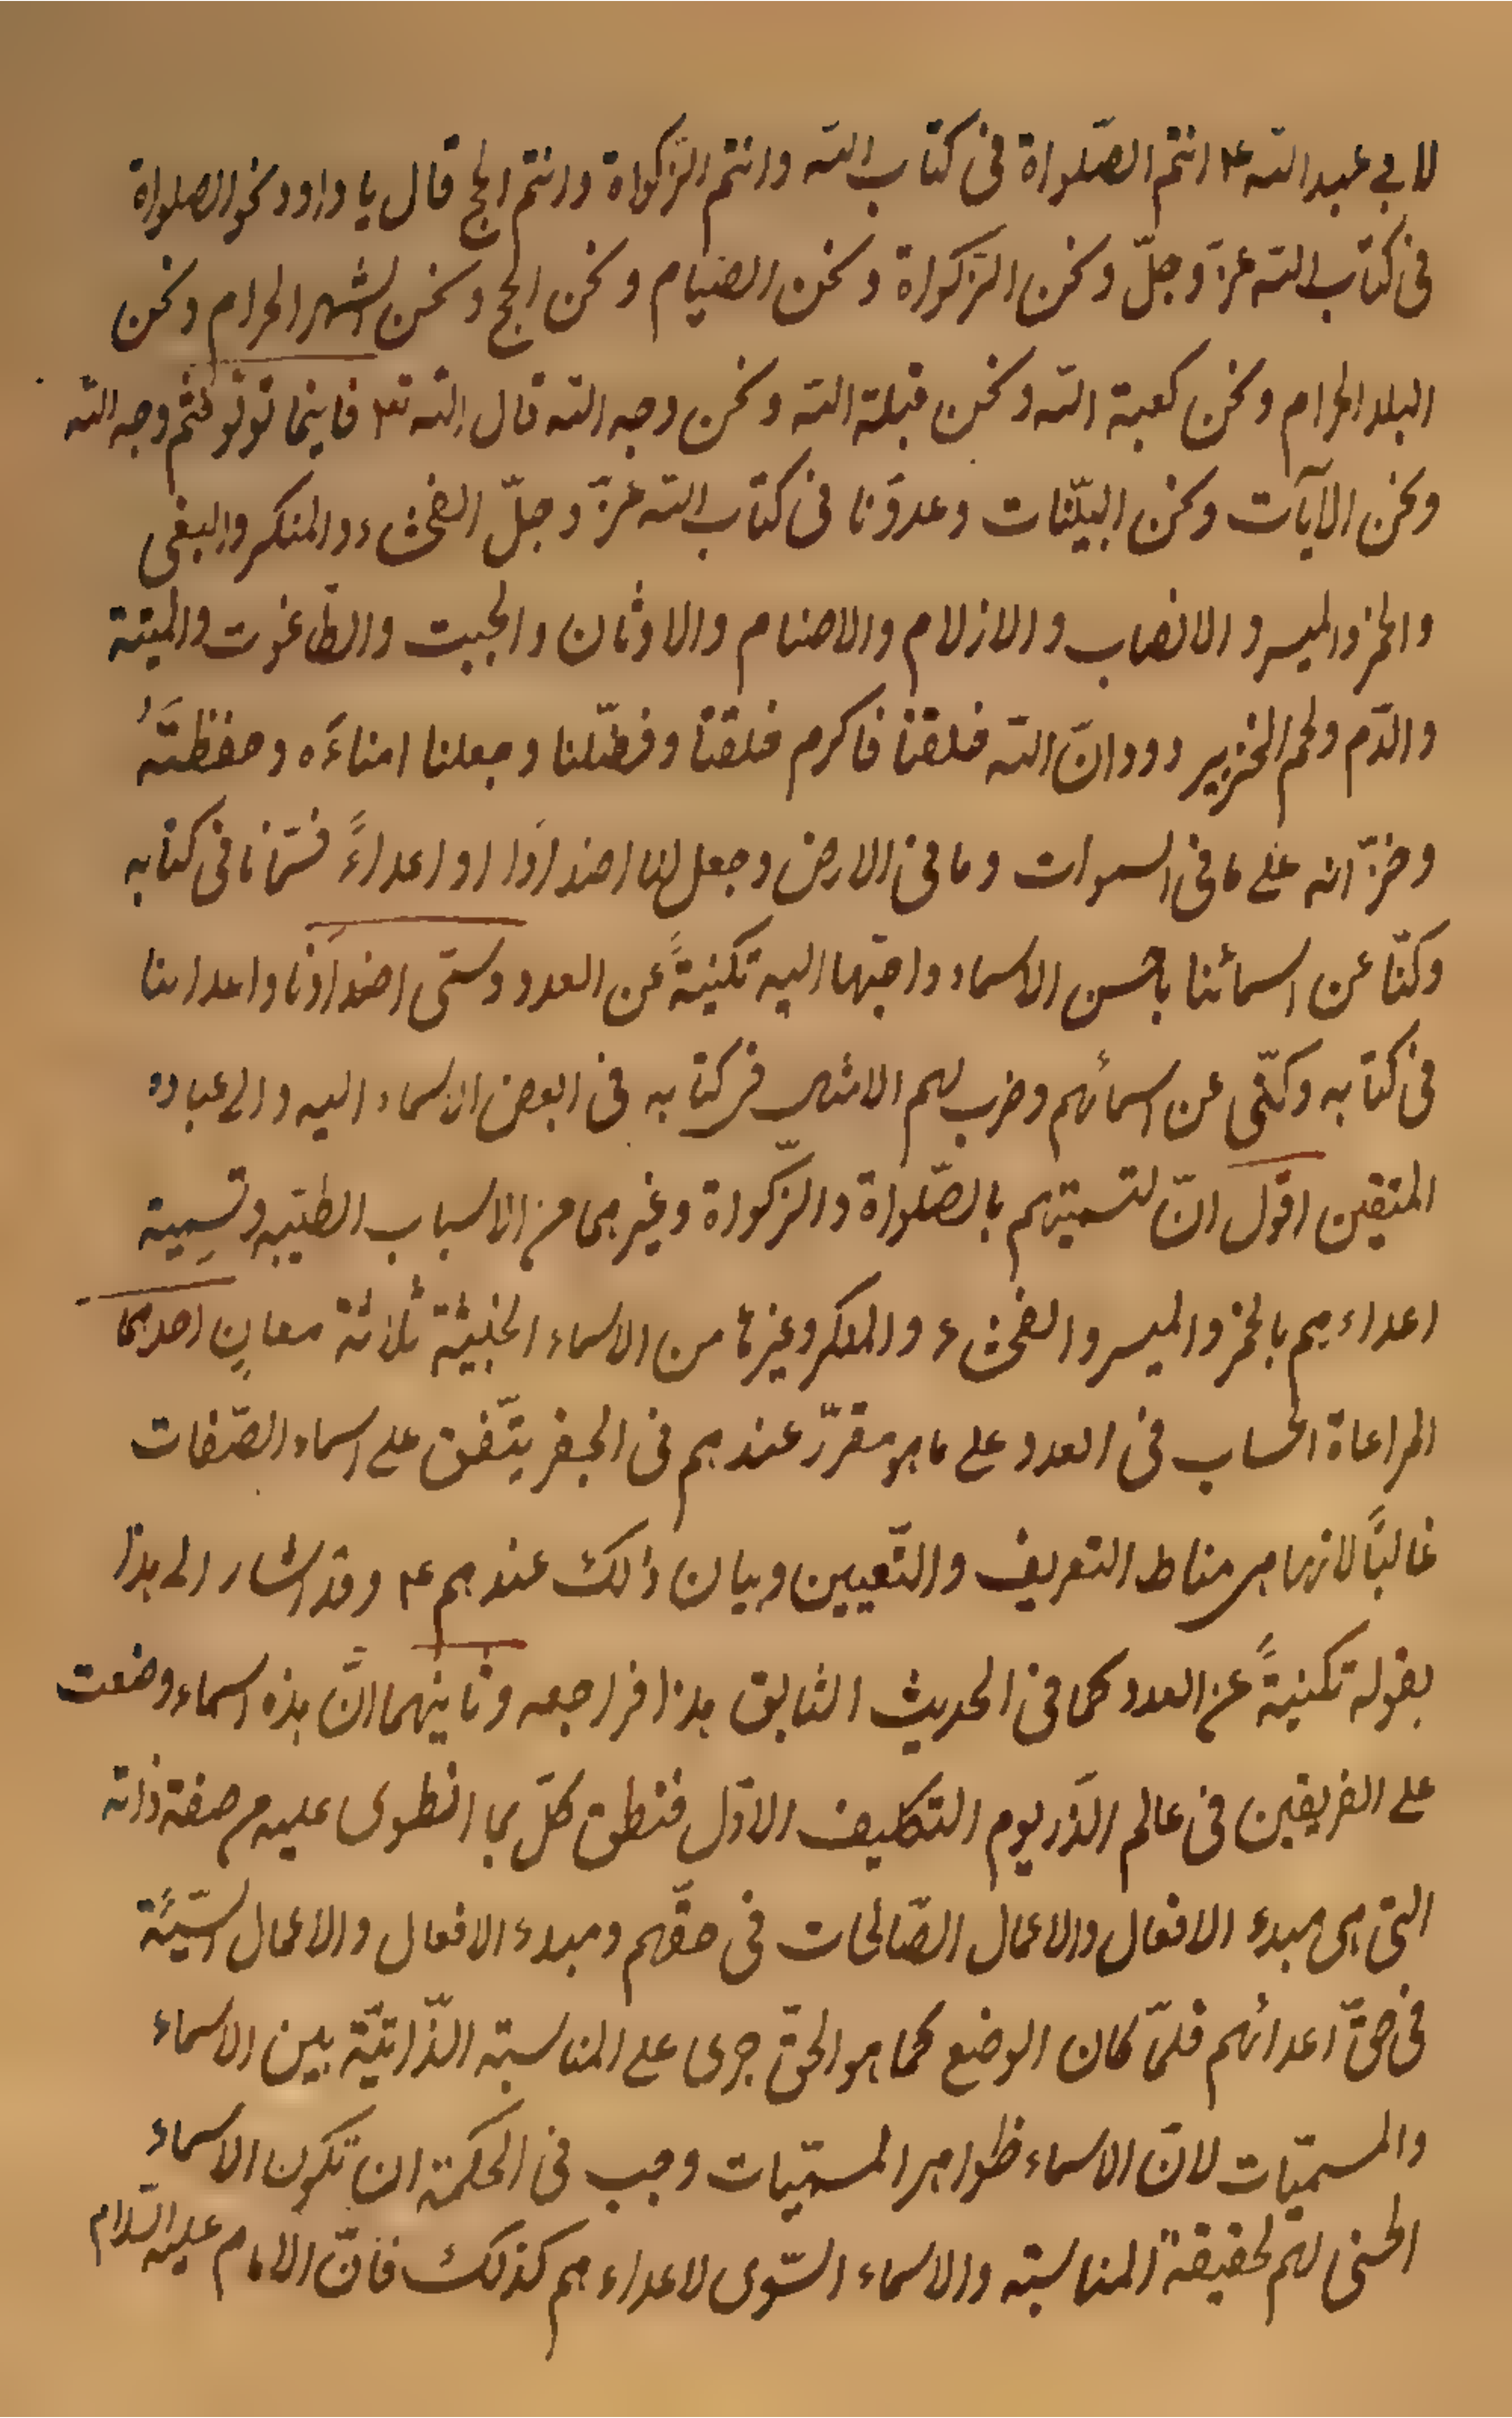 لابي عبد الله ع انتم الصّلواة فى كتاب الله وانتم الزّكواة وانتم الحج قال يا داود نحن الصلواة
فى كتاب الله عزّ وجلّ ونحن الزّكواة ونحن الصيام ونحن الحج ونحن الشهر الحرام ونحن
البلد الحرام ونحن كعبة الله ونحن قبلة الله ونحن وجه الله قال الله تع فاينما تولّو فثم وجه الله
ونحن الآيات ونحن البيّنات وعدوّنا فى كتاب الله عزّ وجلّ الفحشاء والمنكر والبغى
والخمر والميسر والانصاب والازلام والاصنام والاوثان والجبت والطاغوت والميتة
والدّم ولحم الخنزير دوود انّ الله خلقنا فاكرم خلقنا وفضّلنا وجعلنا امناءَه وحفظتَهُ
وخزّانه على ما فى السموات وما فى الارض وجعل لنا اضداَدا او اعداءً فسمّانا فى كتابه
وكنّا عن اسمائنا باحسن الاسماء واحبّها اليه تكنيةً عن العدد وسمّى اضداَدنا واعداىنا
فى كتابه وكنّى عن اسمائهم وضرب لهم الامثال فى كتابه فى ابغض الاسماء اليه والى عباده
المتقين اقول انّ لتسميتهم بالصّلواة والزّكواة وغيرهما من الاسباب الطيّبه وتسِمية
اعداءهم بالخمر والميسر والفحشاء والمنكر وغيرها من الاسماء الخبيثة ثلاثة معانٍ احدها
المراعاة الحساب فى العدد على ما هو مقررّ عندهم فى الجفر يتّفق على اسماء الصّفات
غالبًا لانها هى مناط التعريف والتّعيين وبيان ذالك عندهم ع وقد اشار الى هذا
بقوله تكنيةً عن العدد كما فى الحديث الثابق هذا فراجعه وثاينهما انَّ هذه اسماء وضعت
على الفريقين فى عالم الذّر يوم التكليف الاوّل فنطق كلّ بما انطوى عليه من صفة ذاته
التى هى مبدء الافعال والاعمال الصّالحات فى حقّهم ومبدء الافعال والاعمال السّيّئة
فى حقّ اعدائهم فلمّا كان الوضع كما هو الحق جرى على المناسبة الذّاتيّة بين الاسماء
والمسميّات لانّ الاسماء ظواهر المسمّيات وجب فى الحكمة ان تكون الاسماء
الحسنى لهم لحقيقة المناسبة والاسماء السّوى لاعداءهم كذلك فانّ الامام عليه السّلام